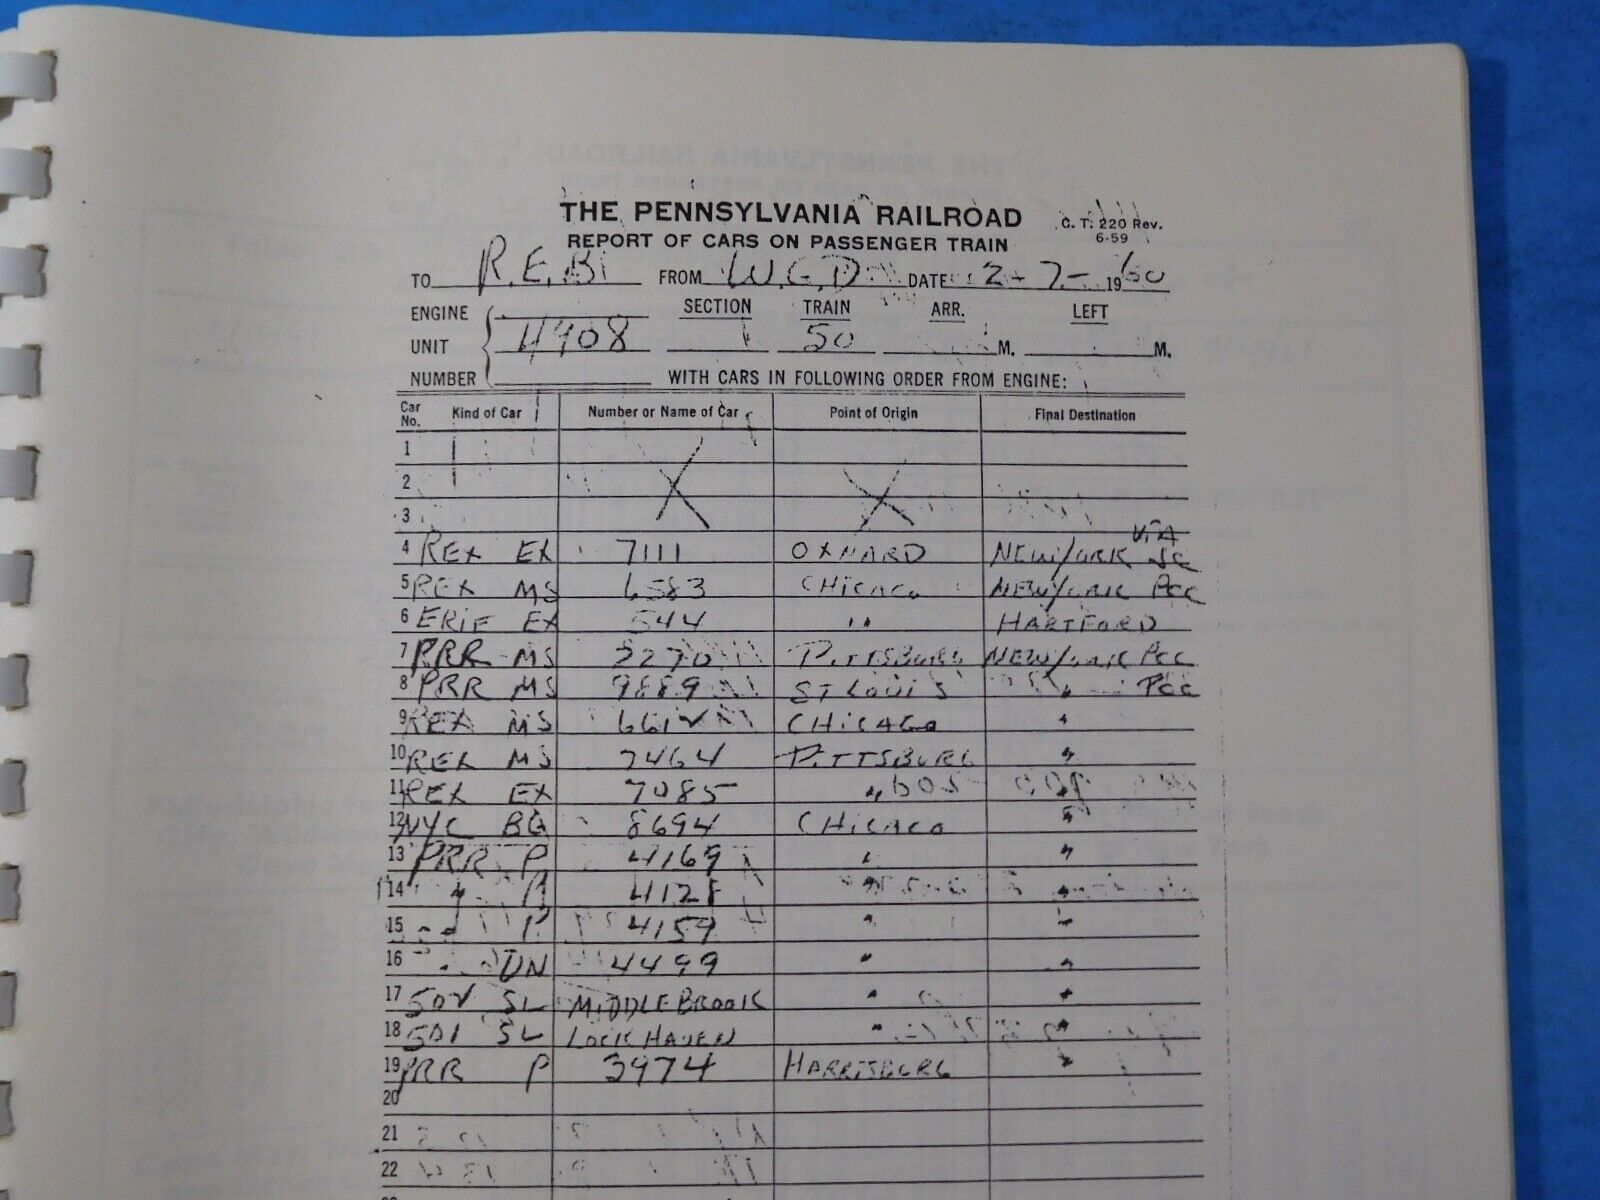 THE PENNSYLVANIA RAILROAD
C. T. 220 Rev.
6-59
REPORT OF CARS ON PASSENGER TRAIN
TO R.E.B. FROM W.G.D. DATE 2-7- 1960
ENGINE SECTION TRAIN ARR. LEFT
UNIT 4908 50 M. M.
NUMBER WITH CARS IN FOLLOWING ORDER FROM ENGINE:
Car No. Kind of Car Number or Name of Car Point of Origin Final Destination
1
2 X X
3
VIA
4 REX EX 7111 OXNARD NEW YORK
5 REX MS 6583 CHICAGO NEW YORK PCC
6 ERIE EX 544 " HARTFORD
7 PRR MS PITTSBURG NEW YORK PCC
8 PRR MS 9889 ST LOUIS " PCC
9 REX MS CHICAGO "
10 REX MS 7464 PITTSBURG "
11 REX EX 7085 "
12 NYC BG 8694 CHICAGO "
13 PRR P 4169 " "
14 " P 4128 " "
15 " P 4159 " "
16 " DN 4499 " "
17 502 SL MIDDLEBROOK " "
18 501 SL LOCK HAVEN " "
19 PRR P 3974 HARRISBURG "
20
21
22